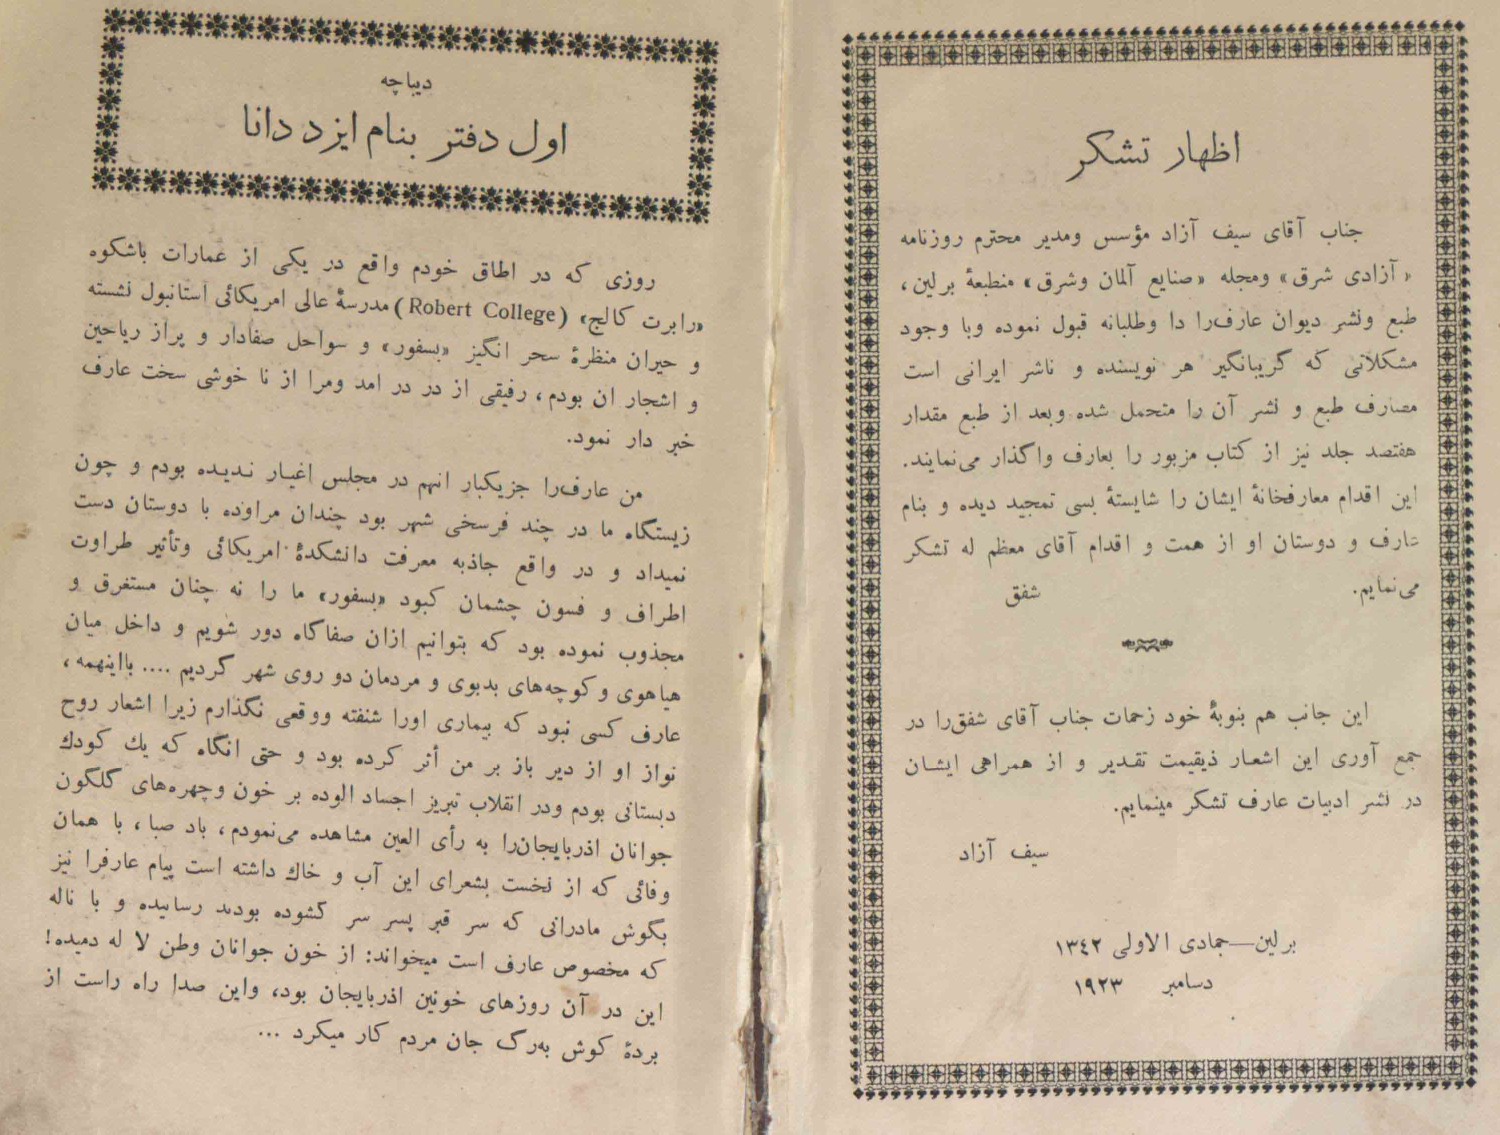 اظهار تشكر
جناب آقای سیف آزاد مؤسس ومدیر محترم روزنامه
«آزادی شرق» ومجله «صنایع آلمان وشرق» منطبعهٔ برلین،
طبع ونشر دیوان عارف‌را دا وطلبانه قبول نموده وبا وجود
مشكلاتی كه گریبانگیر هر نویسنده و ناشر ایرانی است
مصارف طبع و نشر آن را متحمل شده وبعد از طبع مقدار
هفتصد جلد نیز از كتاب مزبور را بعارف واگذار می‌نمایند.
این اقدام معارفخانهٔ ایشان را شایستهٔ بسی تمجید دیده و بنام
عارف و دوستان او از همت و اقدام آقای معظم له تشكر
می‌نمایم. شفق
این جانب هم بنوبهٔ خود زحمات جناب آقای شفق‌را در
جمع آوری این اشعار ذیقیمت تقدیر و از همراهی ایشان
در نشر ادبیات عارف تشكر مینمایم.
سیف آزاد
برلین—جمادی الاولی ۱۳٤۲
دسامبر ۱۹۲۳
دیباچه
اول دفتر بنام ایزد دانا
روزی كه در اطاق خودم واقع در یكی از عمارات باشكوه
«رابرت كالج» (Robert College) مدرسهٔ عالی امریكائی استانبول نشسته
و حیران منظرهٔ سحر انگیز «بسفور» و سواحل صفادار و پراز ریاحین
و اشجار ان بودم، رفیقی از در در امد ومرا از نا خوشی سخت عارف
خبر دار نمود.
من عارف‌را جزیكبار انهم در مجلس اغیار ندیده بودم و چون
زیستگاه ما در چند فرسخی شهر بود چندان مراوده با دوستان دست
نمیداد و در واقع جاذبه معرفت دانشكدهٔ امریكائی وتأثیر طراوت
اطراف و فسون چشمان كبود «بسفور» ما را نه چنان مستغرق و
مجذوب نموده بود كه بتوانیم ازان صفاگاه دور شویم و داخل میان
هیاهوی و كوچه‌های بدبوی و مردمان دو روی شهر گردیم .... بااینهمه،
عارف كسی نبود كه بیماری اورا شنفته ووقعی نگذارم زیرا اشعار روح
نواز او از دیر باز بر من أثر كرده بود و حتی انگاه كه یك كودك
دبستانی بودم ودر انقلاب تبریز اجساد الوده بر خون وچهره‌های گلگون
جوانان اذربایجان‌را به رأی العین مشاهده می‌نمودم، باد صبا، با همان
وفائی كه از نخست بشعرای این آب و خاك داشته است پیام عارفرا نیز
بگوش مادرانی كه سر قبر پسر سر گشوده بودند رسانیده و با ناله
كه مخصوص عارف است میخواند: از خون جوانان وطن لا له دمیده!
این در آن روزهای خونین اذربایجان بود، واین صدا راه راست از
بردهٔ كوش به‌رگ جان مردم كار میكرد ...